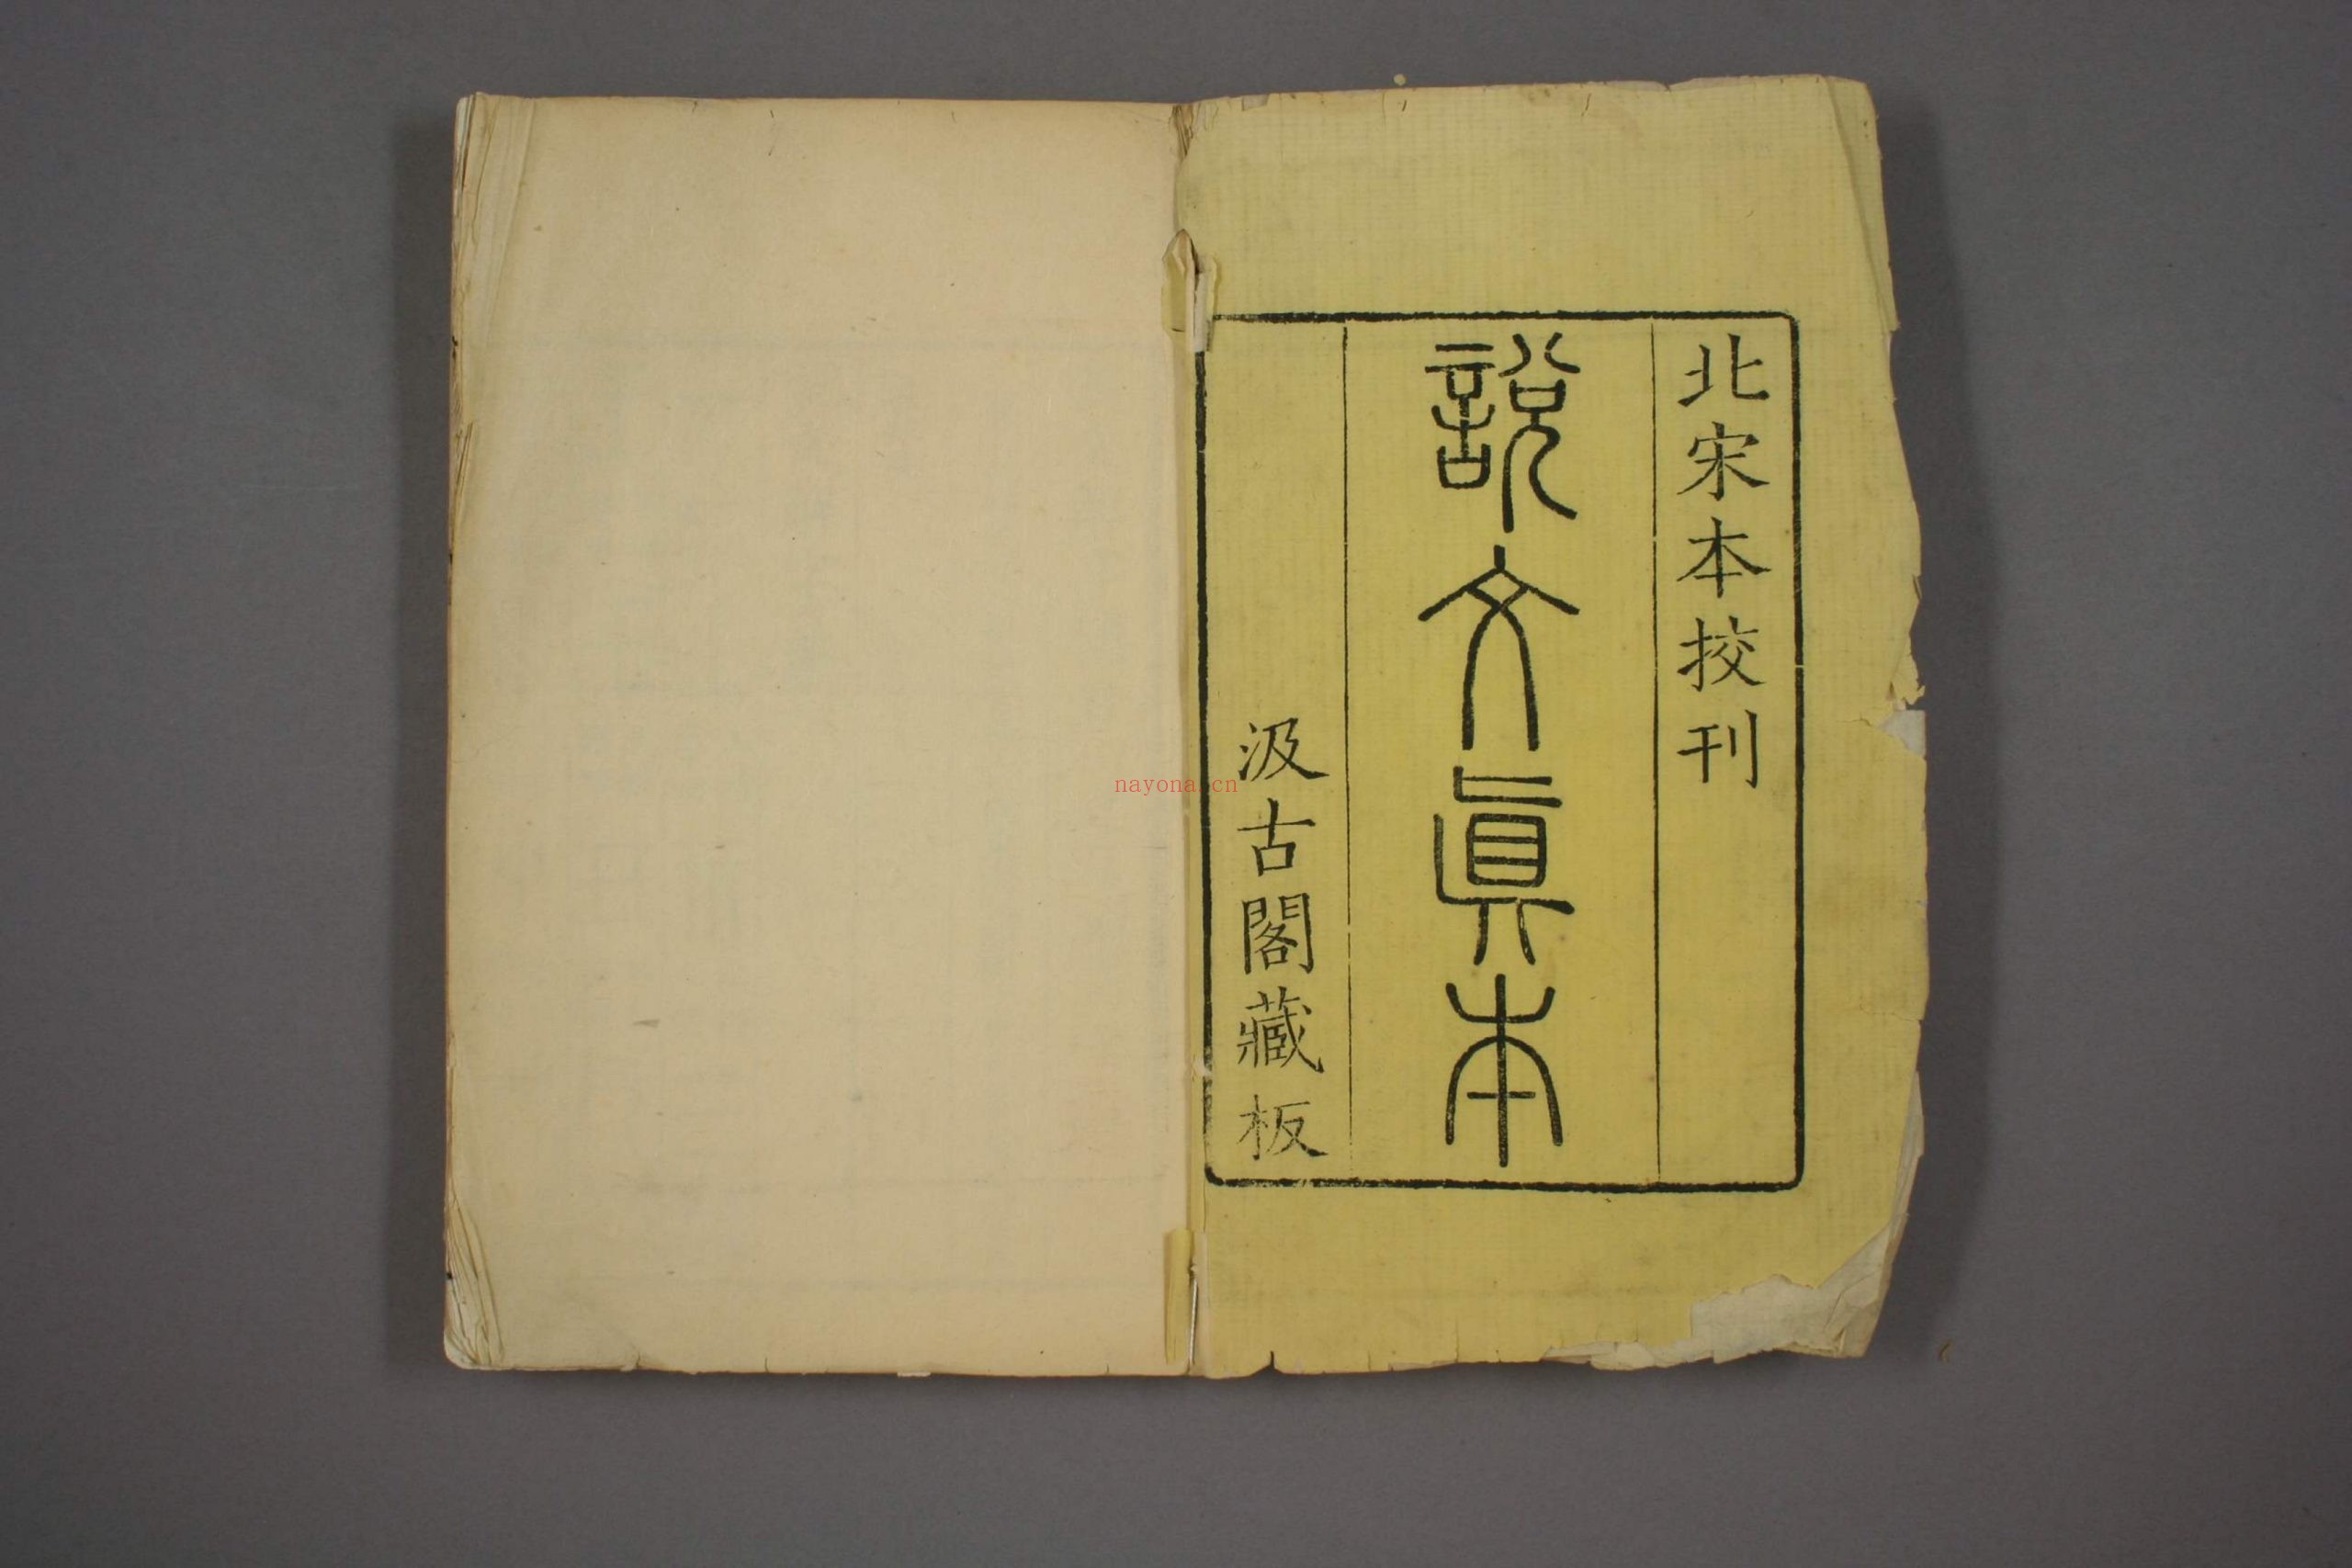 北宋本挍刊
說文眞本
汲古閣藏板
nayona.cn